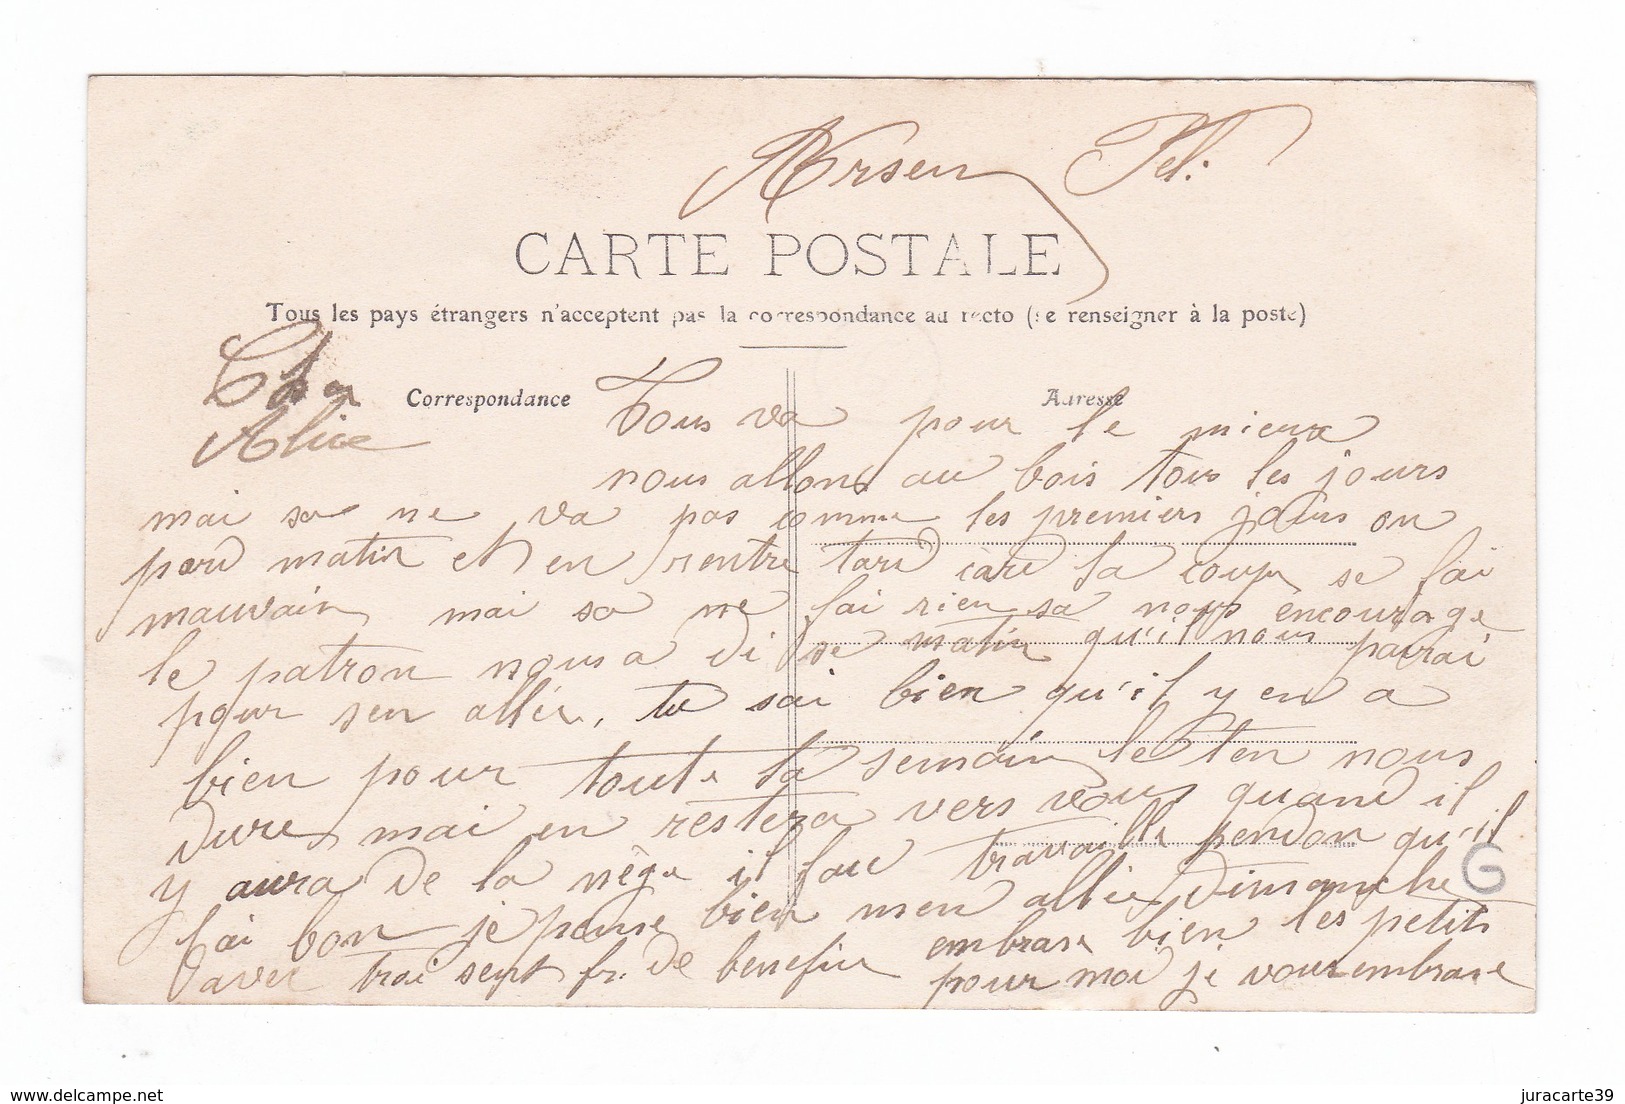 Arsen Fel:
CARTE POSTALE
Tous les pays étrangers n'acceptent pas la correspondance au recto (se renseigner à la poste)
Correspondance
Adresse
Cher
Alice
Tous va pour le mieux
nous allons au bois tous les jours
mai sa ne va pas comme les premiers jours on
pard matin et en rentre tard card la coupe se fai
mauvain mai sa ne fai rien sa nous encourage
le patron nous a di se matin qu'il nous pairai
pour sen aller, tu sai bien qu'il y en a
bien pour toute la semain le ten nous
dure mai en restera vers vous quand il
y aura de la nège il fau travaille pendan qu'il
fai bon je panse bien men allée dimanche
avec trai sept fr. de benefice embrase bien les petits
pour moi je vous embrase
G
juracarte39
www.delcampe.net